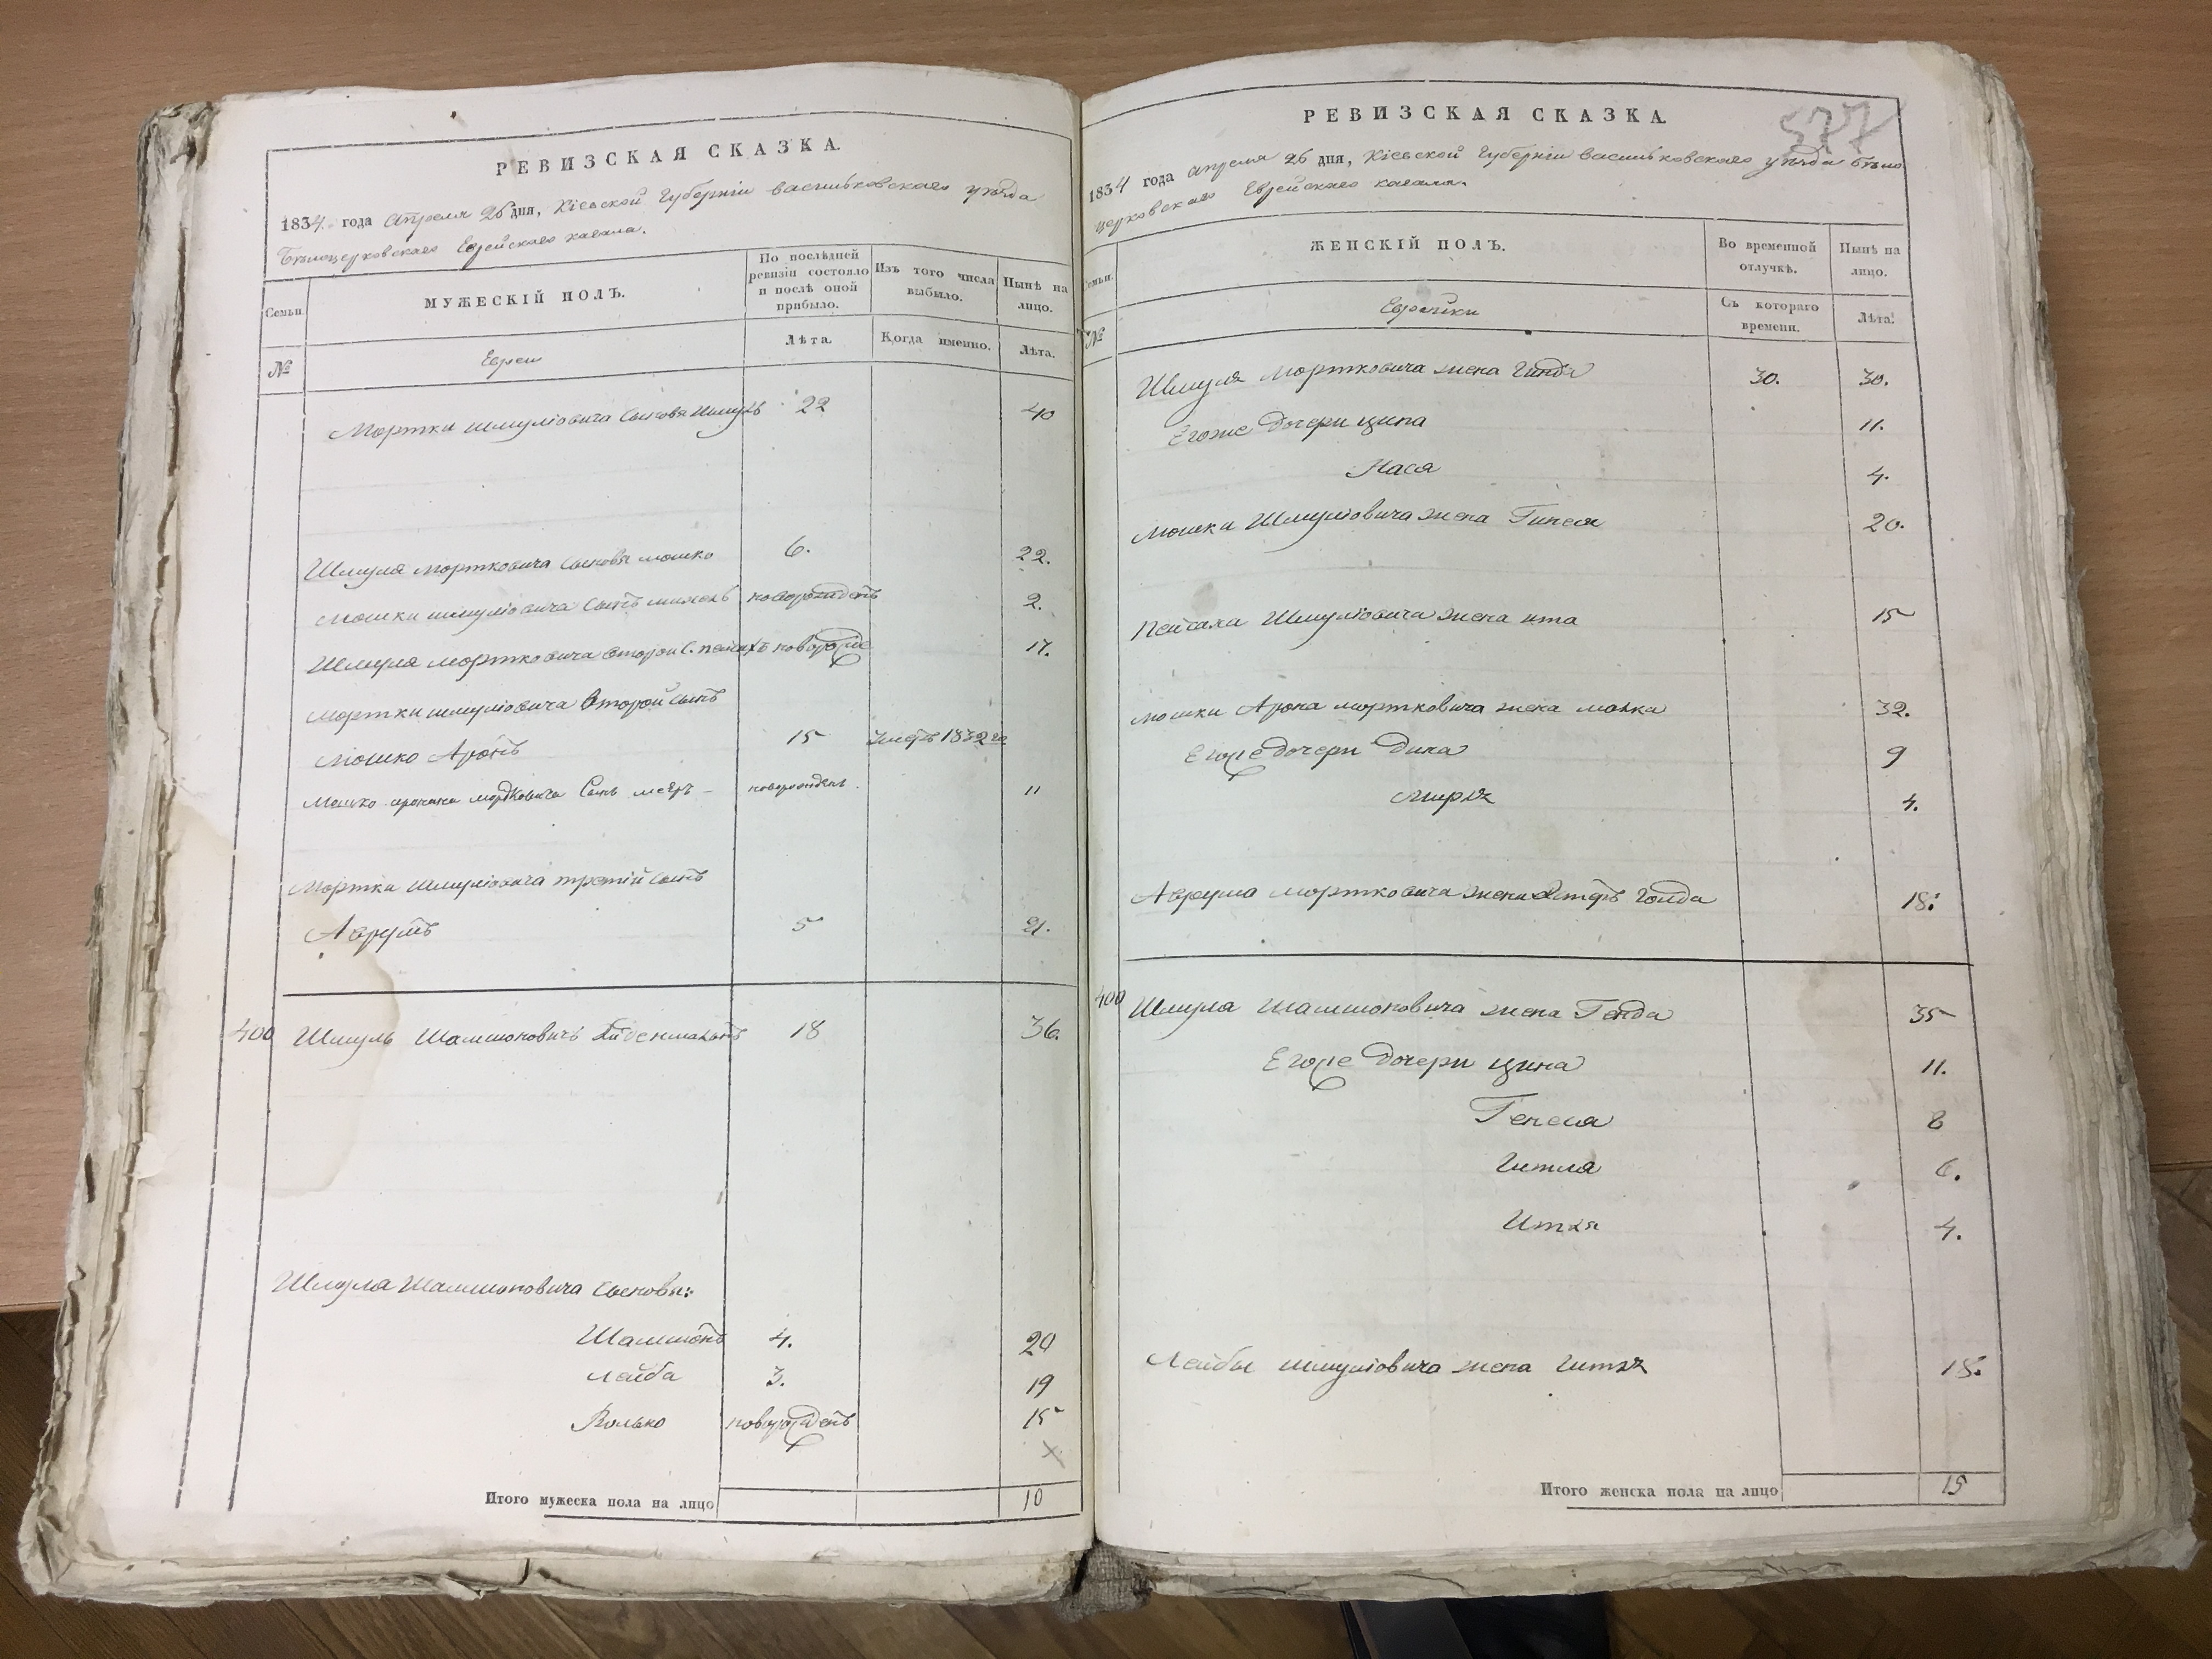 РЕВИЗСКАЯ СКАЗКА.
1834 года Апреля 26 дня, Кіевской Губерніи васильковскаго уѣзда
Бѣлоцерковскаго Еврейскаго кагала.
Семьи.
МУЖЕСКІЙ ПОЛЪ.
По послѣдней ревизіи состояло и послѣ оной прибыло.
Изъ того числа выбыло.
Нынѣ на лицо.
№
Евреи
Лѣта.
Когда именно.
Лѣта.
Мортки шмуліовича сыновя Шмуль 22 40
Шмуля мортковича сыновя мошко 6. 22.
Мошки шмуліовича сынъ новорожденъ 2.
Шмуля мортковича второй с. пейсахъ новорожде 17.
Мортки шмуліовича второй сынъ
Мошко Аронъ 15 умеръ 1832го
Мошко мордковича сынъ меерь новорожден. 11
Мортки Шмуліовича третій сынъ
Аврумъ 5 21.
400 Шмуль Шамшоновичь 18 36.
Шмуля Шамшоновича сыновя:
Шамшонъ 4. 20
Лейба 3. 19
Волько новорожденъ 15
х
Итого мужеска пола на лицо 10
РЕВИЗСКАЯ СКАЗКА.
577
1834 года апреля 26 дня, Кіевской Губерніи васильковскаго уѣзда бѣло
церковскаго Еврейскаго кагала.
Семьи.
ЖЕНСКІЙ ПОЛЪ.
Во временной отлучкѣ.
Нынѣ на лицо.
№
Еврейки
Съ котораго времени.
Лѣта.
Шмуля Мортковича жена Гинда 30. 30.
Егоже дочери ципа 11.
Хася 4.
Мошки Шмуліовича жена Генеся 20.
Пейсаха Шмуліовича жена ита 15
мошки Арона мортковича жена малка 32.
Егоже дочери Дина 9
Мирля 4.
Аврума мортковича жена Эстеръ Голда 18.
400 Шмуля Шамшоновича жена Генда 35
Егоже дочери ципа 11.
Генеся 8
Гитля 6.
Итля 4.
Лейбы шмуліовича жена Гитля 18.
Итого женска пола на лицо 15